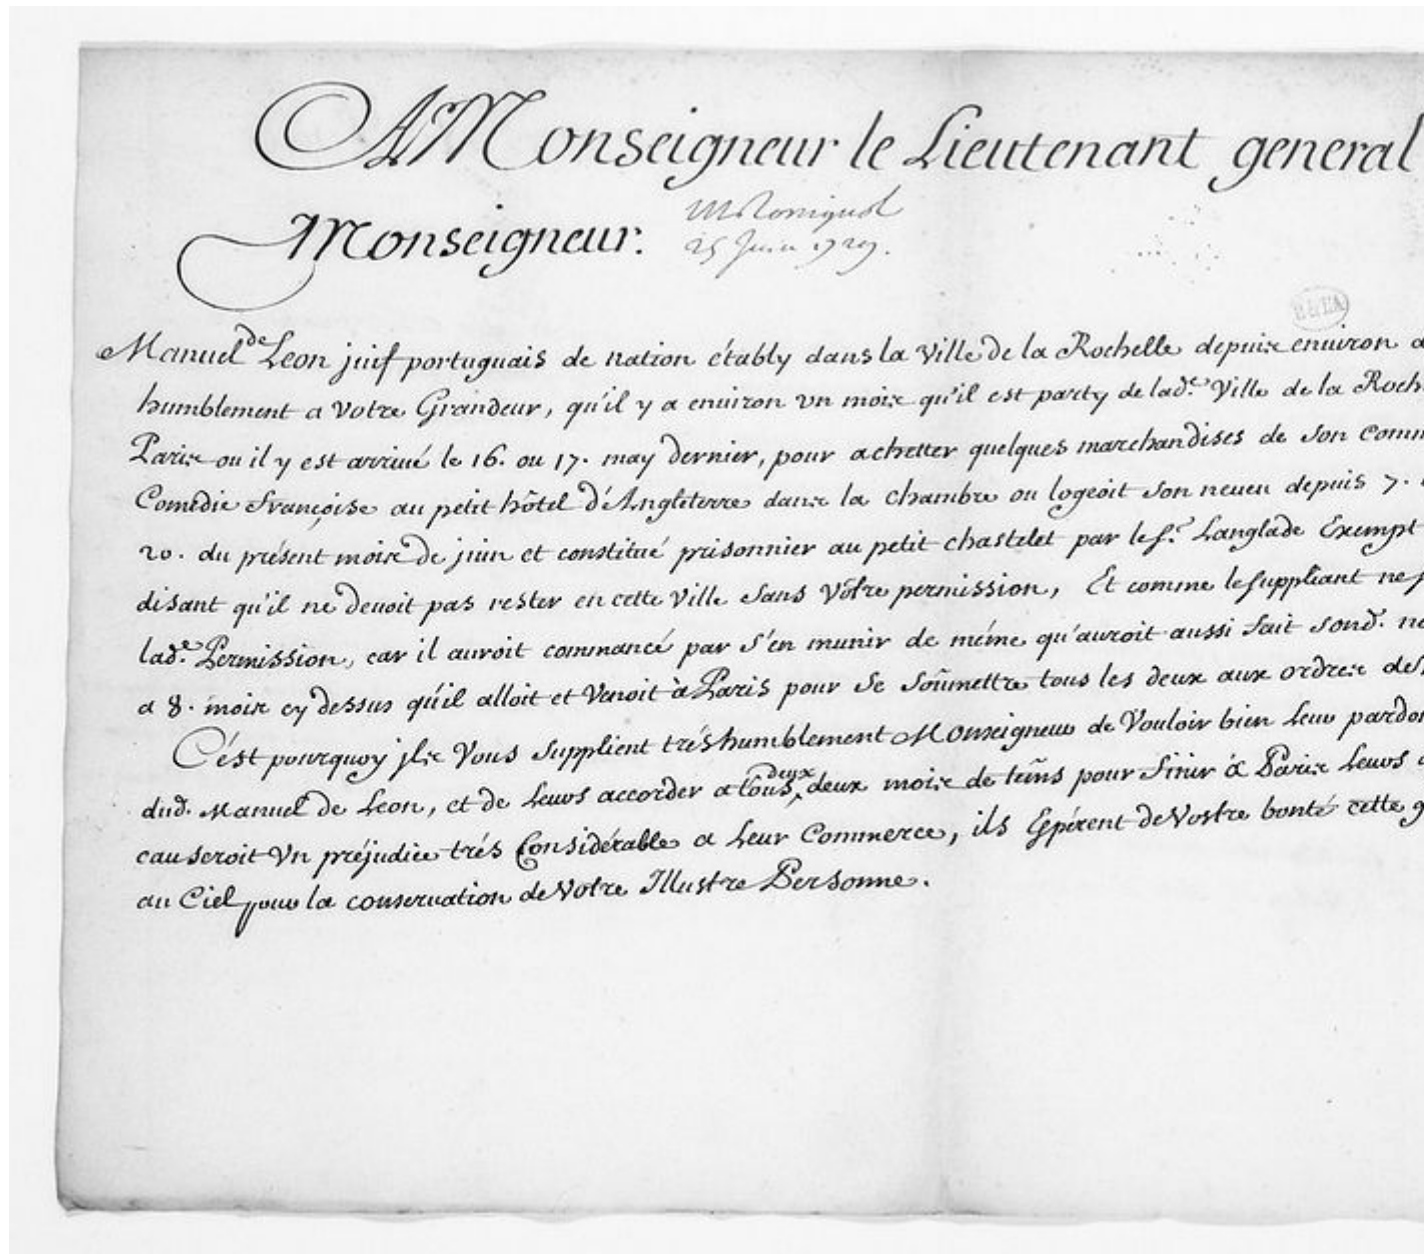 A Monseigneur le Lieutenant general
Monseigneur.
25 Juin 1729.
Manuel de Leon juif portuguais de nation étably dans la Ville de la Rochelle depuis environ
humblement a Votre Grandeur, qu'il y a environ un mois qu'il est party de lad.e Ville de la Roch
Paris ou il y est arrivé le 16. ou 17. may dernier, pour achetter quelques marchandises de son Comm
Comedie françoise au petit hôtel d'Angleterre dans la chambre ou logeoit son neveu depuis 7.
20. du présent mois de juin et constitué prisonnier au petit chastelet par le s.r Langlade Exempt
disant qu'il ne devoit pas rester en cette Ville sans Vôtre permission, Et comme le suppliant ne
lad.e Permission, car il auroit commancé par s'en munir de méme qu'auroit aussi fait sond. ne
a 8. mois cy dessus qu'il alloit et Venoit à Paris pour se soûmettre tous les deux aux ordres de
C'est pourquoy jls Vous supplient trés humblement Monseigneur de Vouloir bien leur pardon
dud. Manuel de Leon, et de leurs accorder a tous deux deux mois de tems pour finir à Paris leurs
causeroit Un préjudice trés Considérable a leur Commerce, ils Espérent de Vostre bonté cette
au Ciel pour la conservation de Votre Illustre Personne.